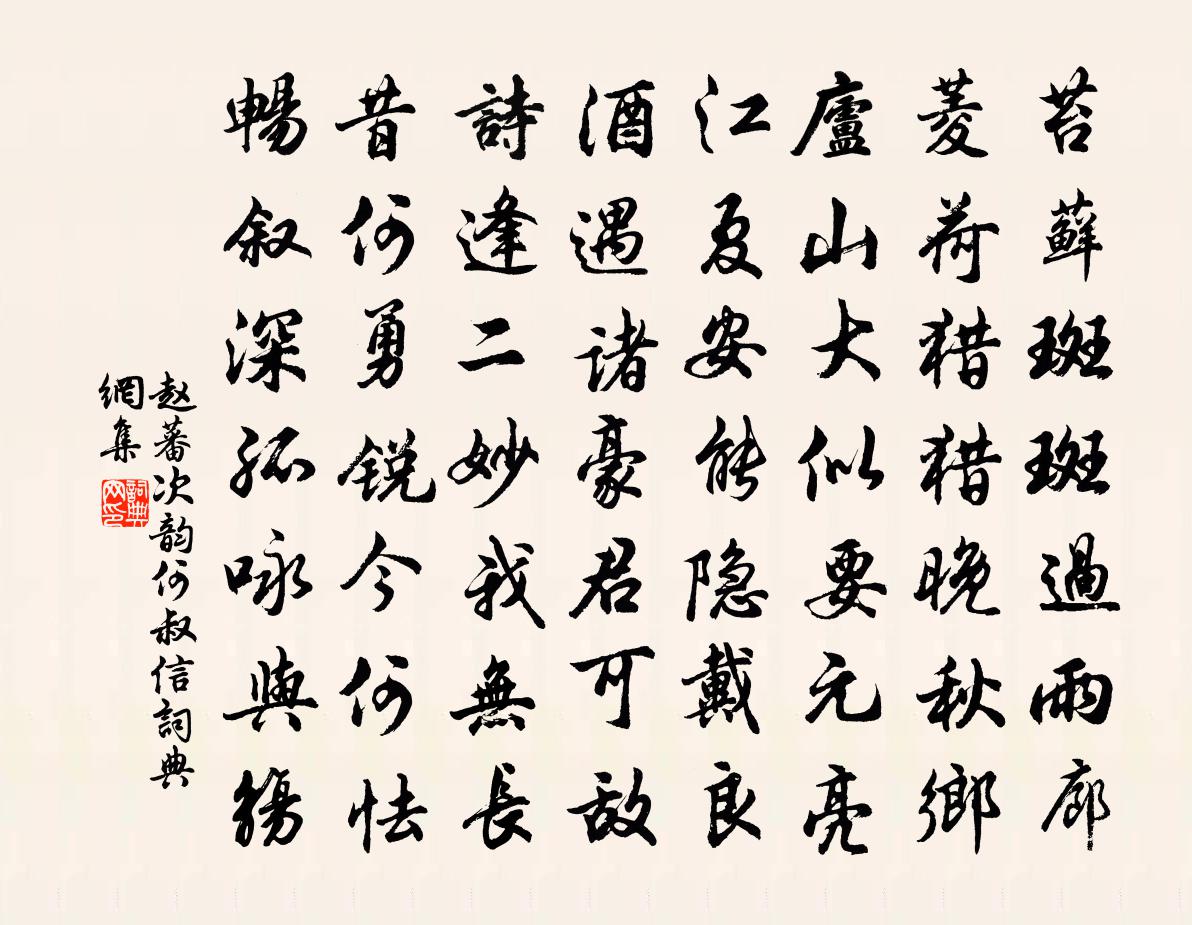 苔蘚斑斑過雨廊
菱荷猎猎晚秋鄉
廬山大似要元亮
江夏安能隐戴良
酒遇诸豪君可敌
詩逢二妙我無長
昔何勇锐今何怯
暢叙深孤咏與觴
赵蕃次韵何叔信詞典
網集
詞典
网印